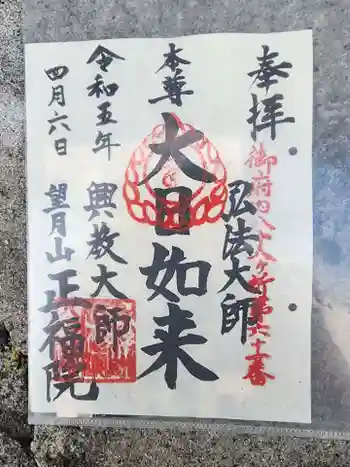 奉拝
御府内八十八ヶ所第六十一番
弘法大師
本尊
大日如来
興教大師
令和五年
四月六日
望月山
正福院